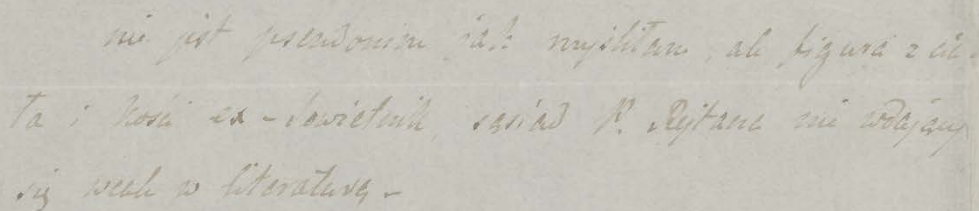 nie jest pseudonim jak myślałam, ale figura z cia-
ła i kości ex-Sowietnik, sąsiad P. Rejtana nie wdający
się wcale w literaturę –